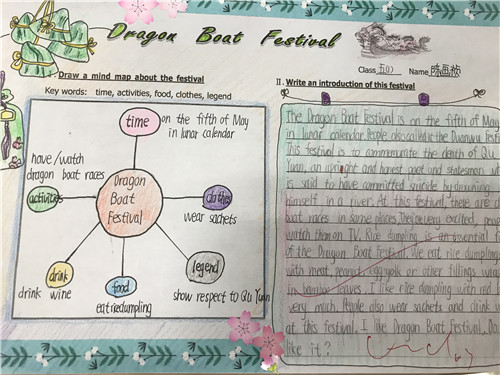 Dragon Boat Festival
Class 五(1) Name
I. Draw a mind map about the festival
Key words: time, activities, food, clothes, legend
time
on the fifth of May
in lunar calendar
have/watch
dragon boat races
activities
Dragon
Boat
Festival
clothes
wear sachets
drink
drink wine
food
eat ricedumpling
legend
show respect to Qu Yuan
II. Write an introduction of this festival
The Dragon Boat Festival is on the fifth of May
in lunar calendar. People also called it the Duanwu
This festival is to commemorate the death of Qu
Yuan, an upright and honest poet and statesman
is said to have committed suicide by drowning
himself in a river. At this festival, there are
boat races in some places. They're very excited.
watch them on TV. Rice dumpling is an essential
of the Dragon Boat Festival. We eat rice dumplings
with meat, peanut, egg yolk or other fillings
in bamboo leaves. I like rice dumpling with red
very much. People also wear sachets and drink
at this festival. I like Dragon Boat Festival. Do
like it?